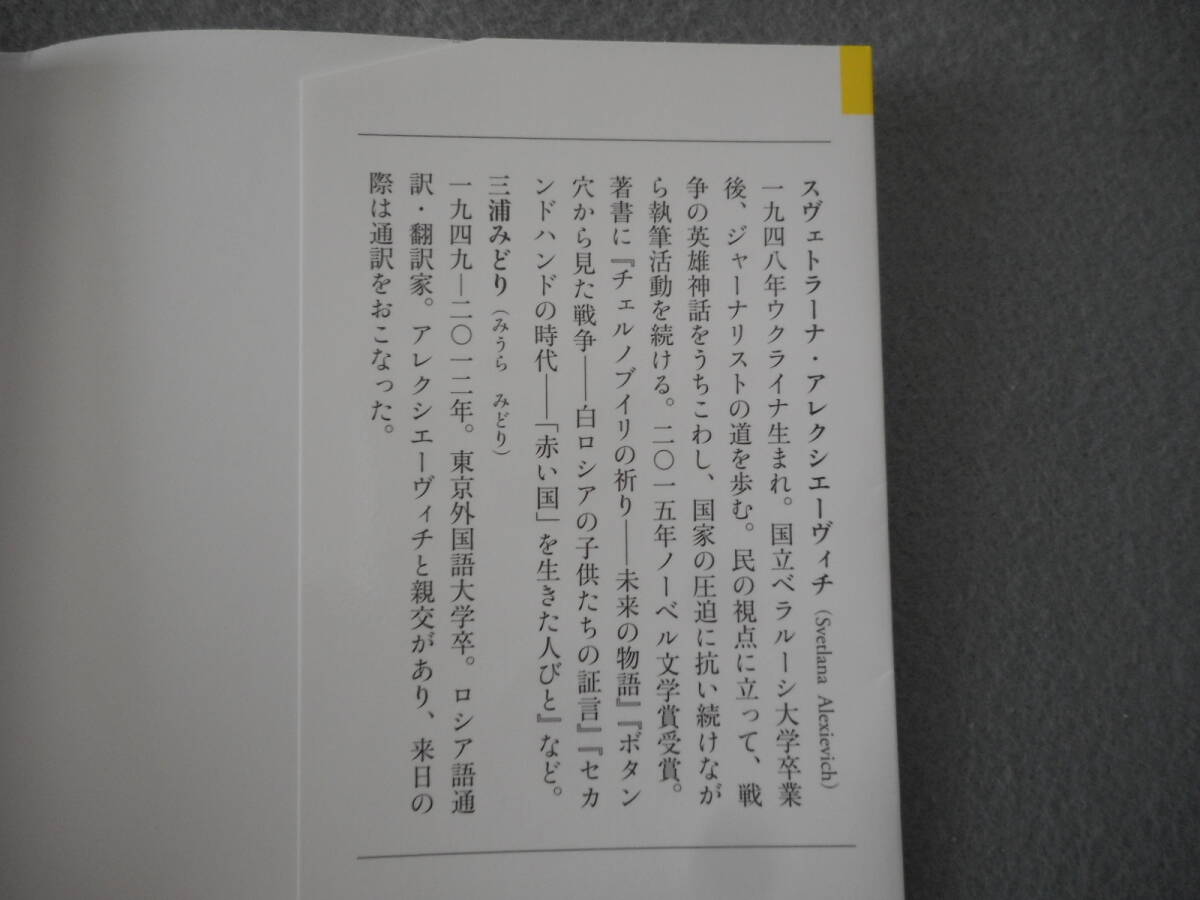 スヴェトラーナ・アレクシエーヴィチ（Svetlana Alexievich）
一九四八年ウクライナ生まれ。国立ベラルーシ大学卒業
後、ジャーナリストの道を歩む。民の視点に立って、戦
争の英雄神話をうちこわし、国家の圧迫に抗い続けなが
ら執筆活動を続ける。二〇一五年ノーベル文学賞受賞。
著書に『チェルノブイリの祈り——未来の物語』『ボタン
穴から見た戦争——白ロシアの子供たちの証言』『セカ
ンドハンドの時代——「赤い国」を生きた人びと』など。
三浦みどり（みうら　みどり）
一九四九—二〇一二年。東京外国語大学卒。ロシア語通
訳・翻訳家。アレクシエーヴィチと親交があり、来日の
際は通訳をおこなった。